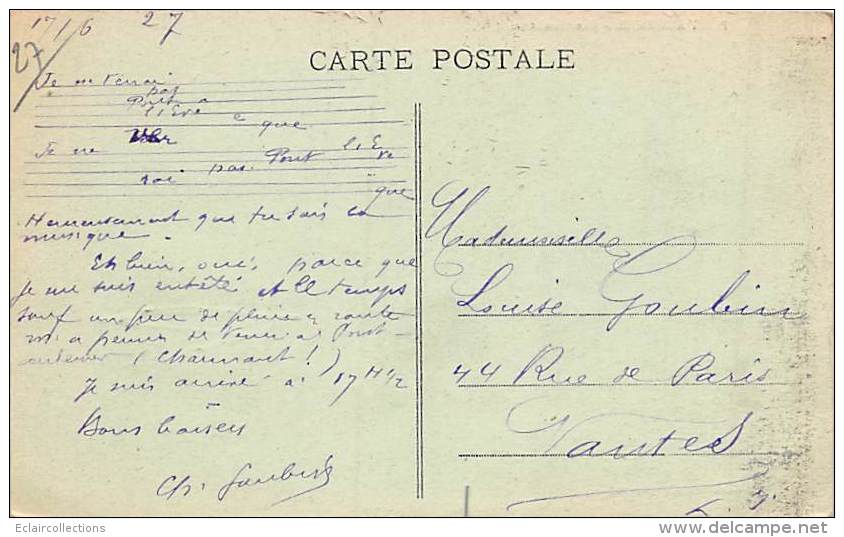 17/6 27
27
CARTE POSTALE
Je
pas
Pont a
l'Eve
que
Je ne
pas Pont l'Eve
que
Heureusement que tu sais la
musique.
Eh bien, oui, parce que
Je me suis entêté et le temps
sauf un peu de pluie en route
m'a permis de venir à Pont-
(charmant!)
Je suis arrivé à 17 H 1/2
Bons baisers
Ch. Goubin
Mademoiselle
Louise Goubin
44 Rue de Paris
Nantes
Eclaircollections
delcampe.net